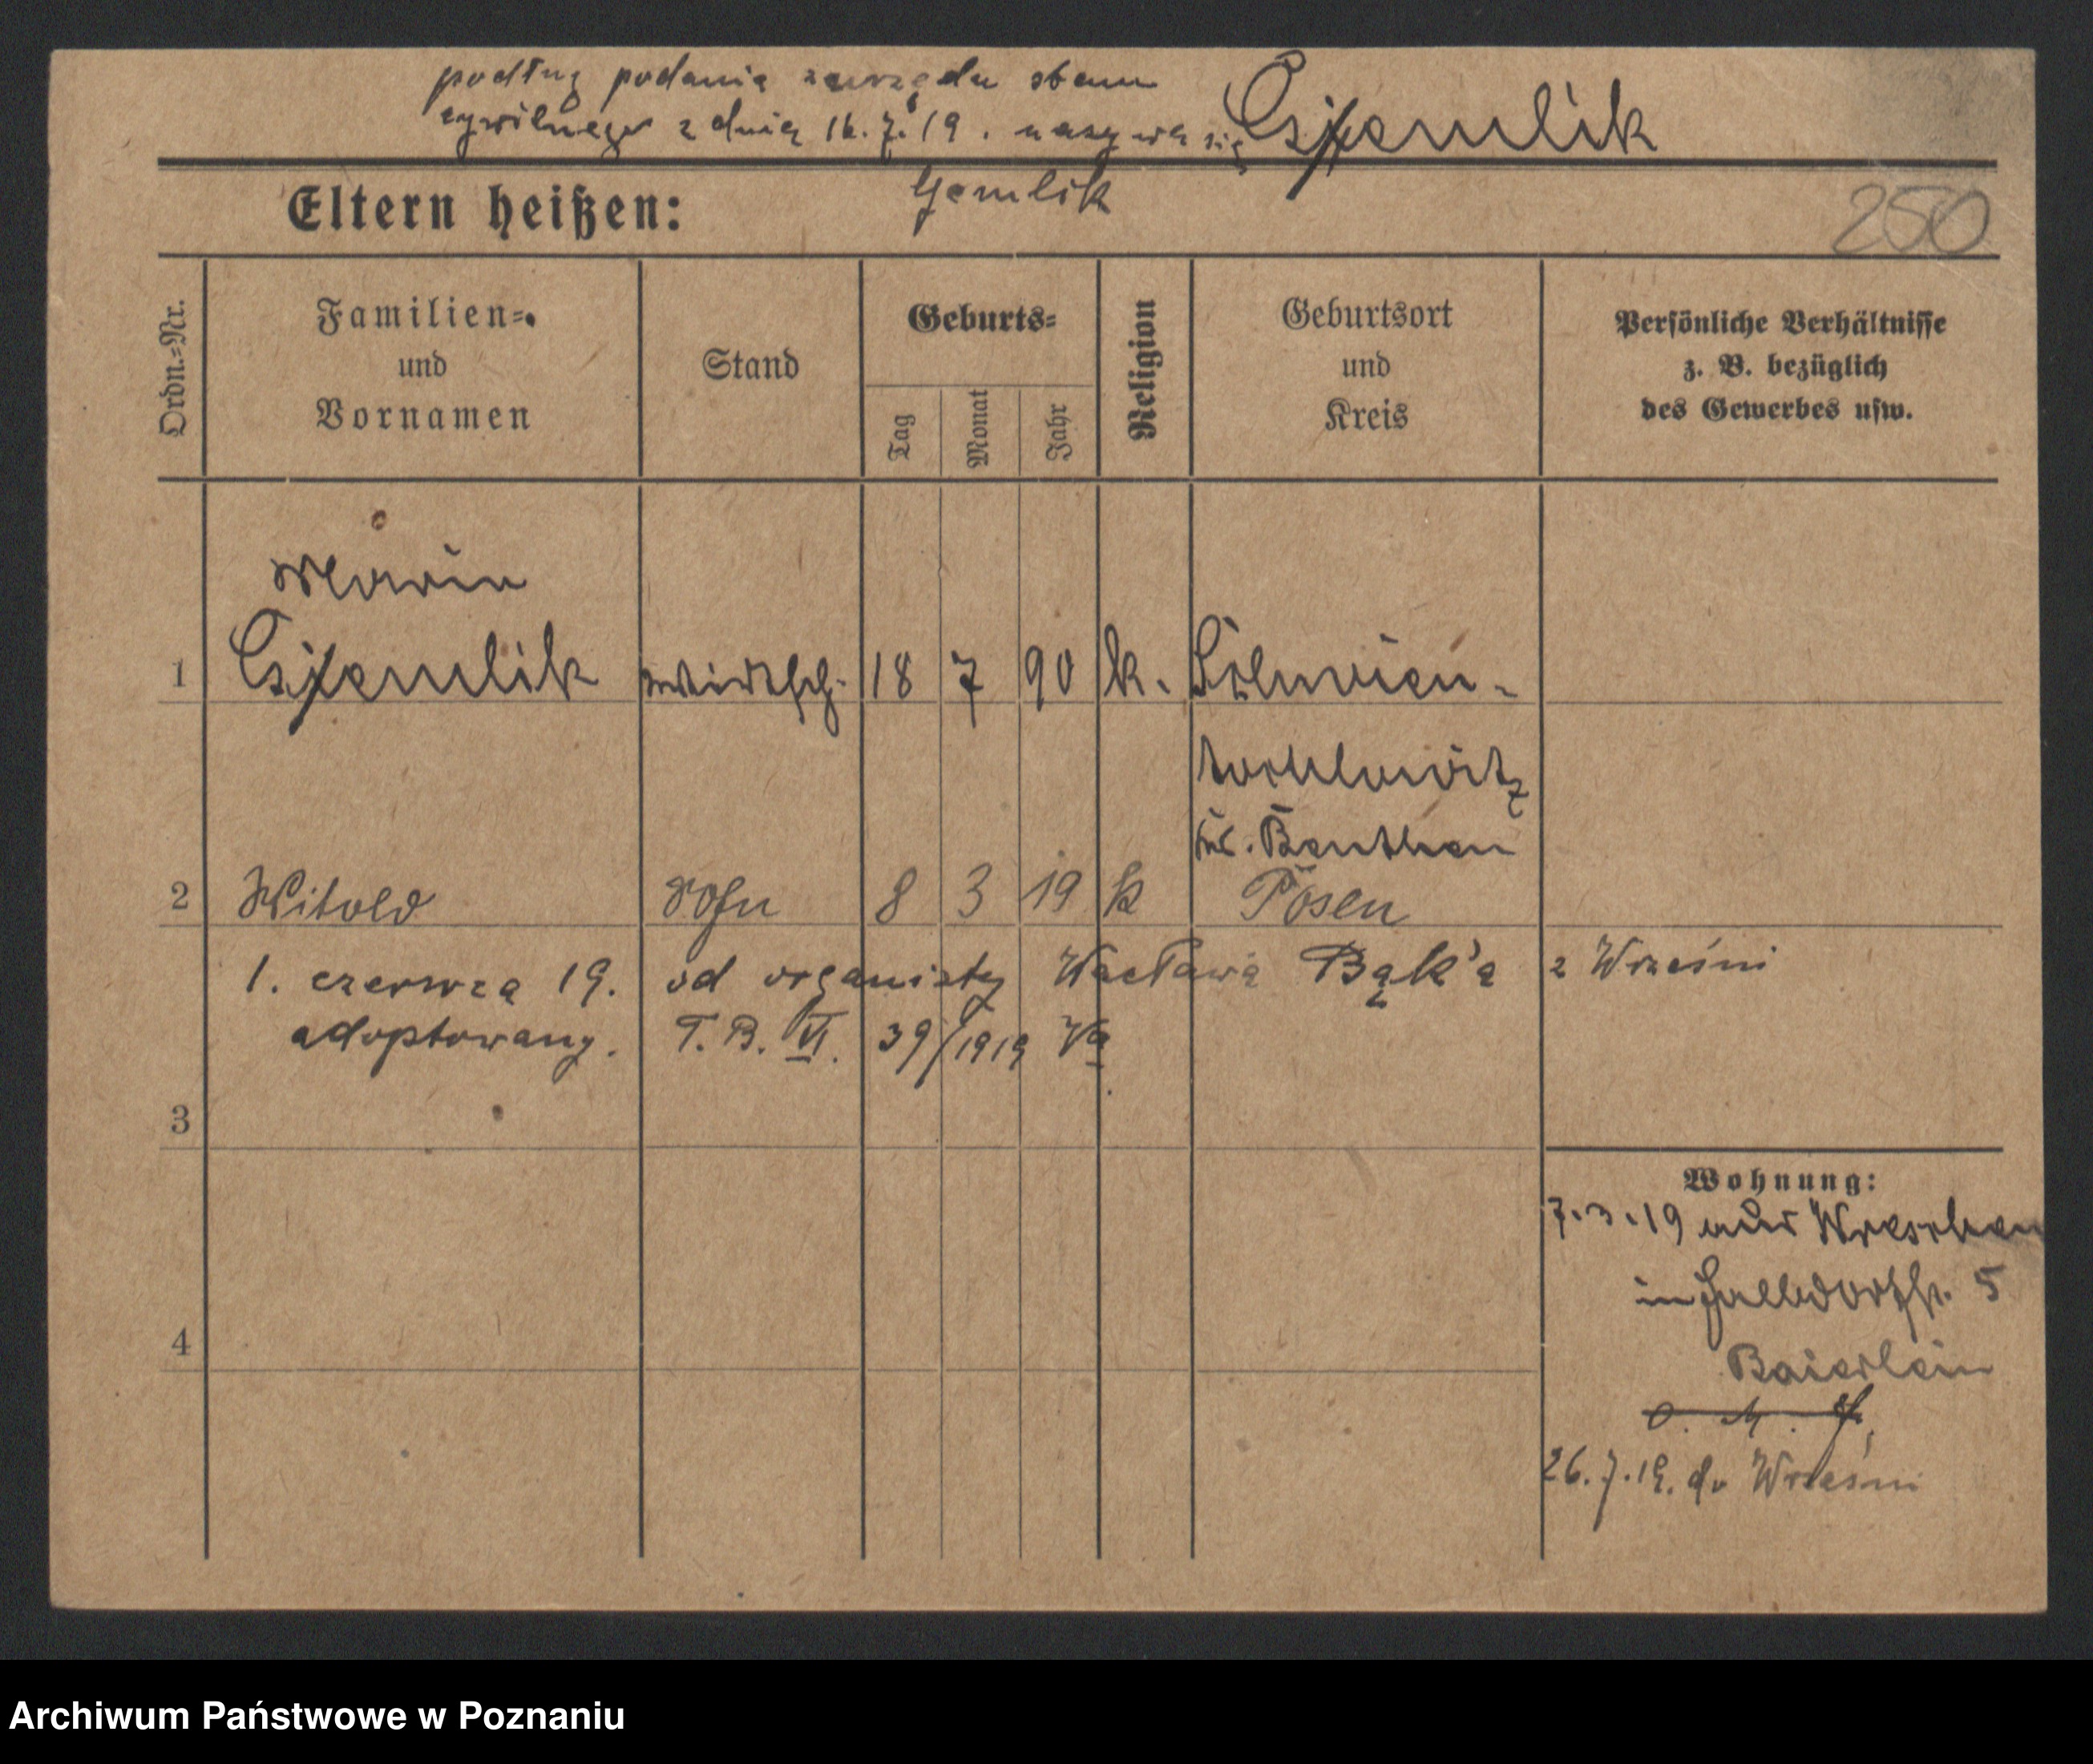 podług podania zarządu stanu
cywilnego z dnia 16.7.19. nazywa się
Czemlik
Eltern heißen:
Gemlik
250
Ordn.=Nr.
Familien=
und
Vornamen
Stand
Geburts=
Tag
Monat
Jahr
Religion
Geburtsort
und
Kreis
Persönliche Verhältnisse
z. B. bezüglich
des Gewerbes usw.
Maria
1 Czemlik Wirtsch. 18 7 90 k.
Kr. Beuthen
2 Witold Sohn 8 3 19 k Posen
1. czerwca 19. od organisty Wacława Bąk'a z Wrześni
adoptowany. T. B. VI. 39/1919 Va
3
Wohnung:
7.3.19 aus Wreschen
in 5
Baierlein
4
26.7.19. do Wrześni
Archiwum Państwowe w Poznaniu